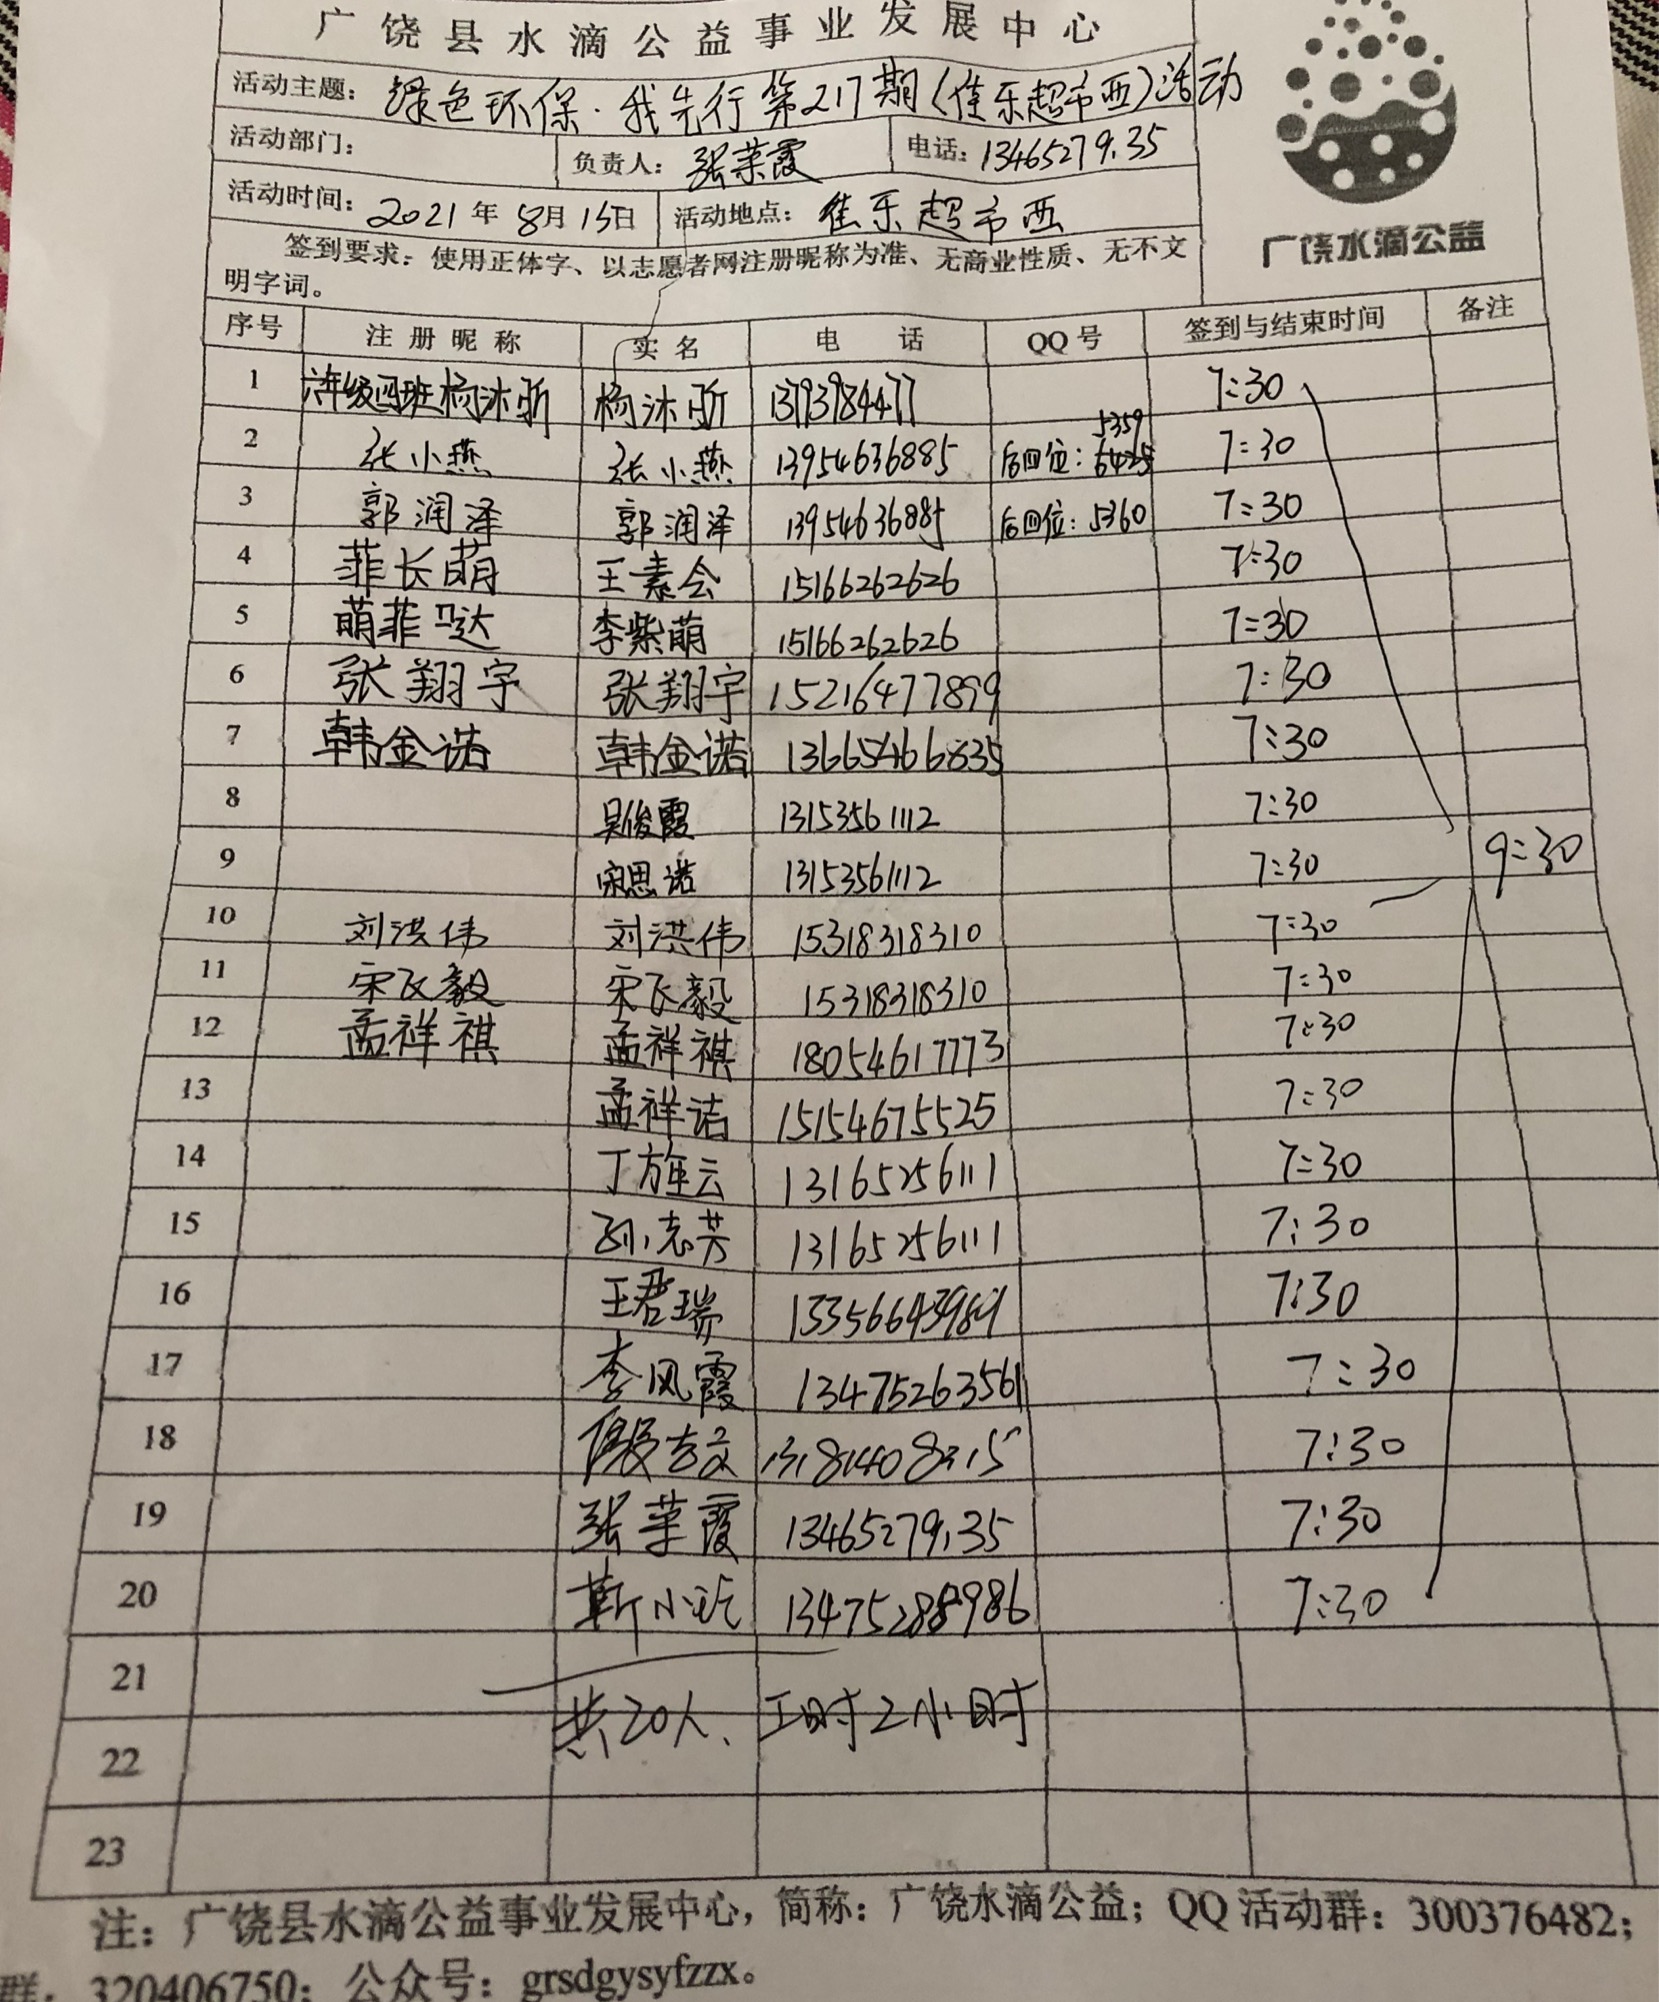 广饶县水滴公益事业发展中心
活动主题：绿色环保·我先行第217期（佳乐超市西）活动
活动部门： 负责人：张荣霞 电话：13465279135
活动时间：2021年8月15日 活动地点：佳乐超市西
广饶水滴公益
签到要求：使用正体字、以志愿者网注册昵称为准、无商业性质、无不文
明字词。
序号 注册昵称 实名 电话 QQ号 签到与结束时间 备注
1 六年级四班杨沐昕 杨沐昕 13793984477 7:30
2 张小燕 张小燕 13954636885 后四位：5359 7:30
3 郭润泽 郭润泽 13954636885 后四位：5360 7:30
4 菲长萌 王素会 15166262626 7:30
5 萌菲哒 李紫萌 15166262626 7:30
6 张翔宇 张翔宇 15216477899 7:30
7 韩金诺 韩金诺 13665466835 7:30
8 吴俊霞 13153561112 7:30
9 宋思诺 13153561112 7:30 9:30
10 刘洪伟 刘洪伟 15318318310 7:30
11 宋飞毅 宋飞毅 15318318310 7:30
12 孟祥祺 孟祥祺 18054617773 7:30
13 孟祥诺 15154675525 7:30
14 丁旌云 13165256111 7:30
15 孙志芳 13165256111 7:30
16 王君瑞 7:30
17 李风霞 13475263561 7:30
18 7:30
19 张荣霞 13465279135 7:30
20 靳小 13475288986 7:30
21
共20人、工时2小时
22
23
注：广饶县水滴公益事业发展中心，简称：广饶水滴公益；QQ活动群：300376482；
群：320406750；公众号：grsdgysyfzzx。